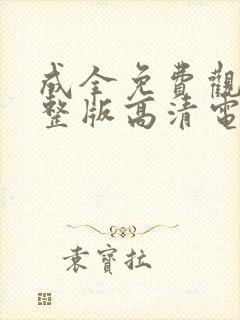 成全免費觀
整版高清電
袁寶拉